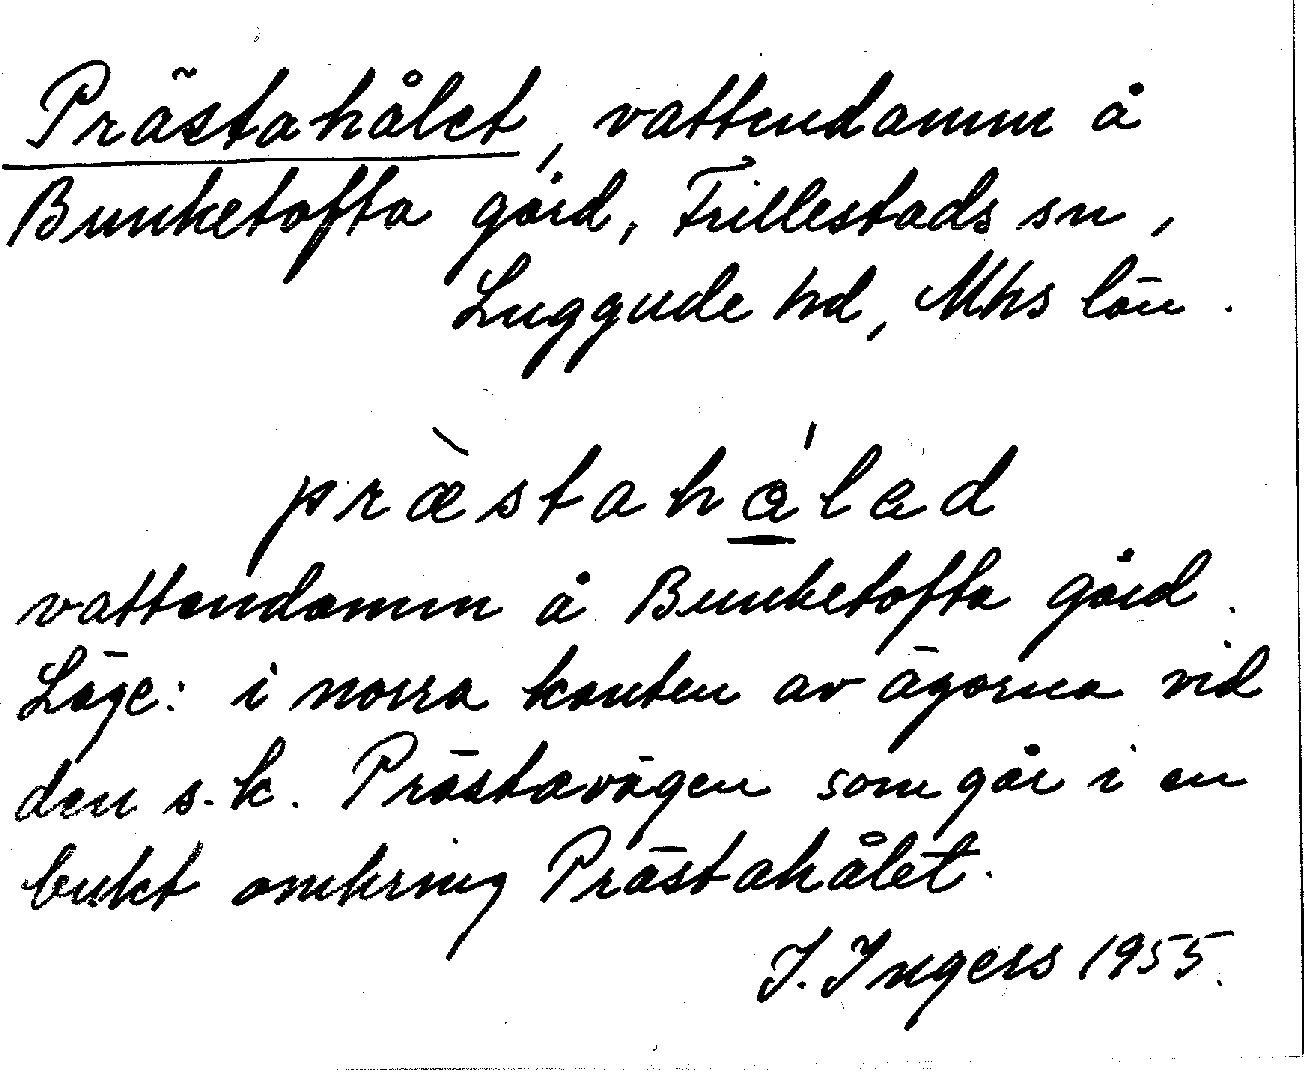 Prästahålet, vattendamm å
Bunketofta gård, Frillestads sn,
Luggude hd, Mhs län.
præ̀stahɑ̲́lad
vattendamm å Bunketofta gård.
Läge: i norra kanten av ägorna vid
den s.k. Prästavägen som går i en
bukt omkring Prästahålet.
I. Ingers 1955.